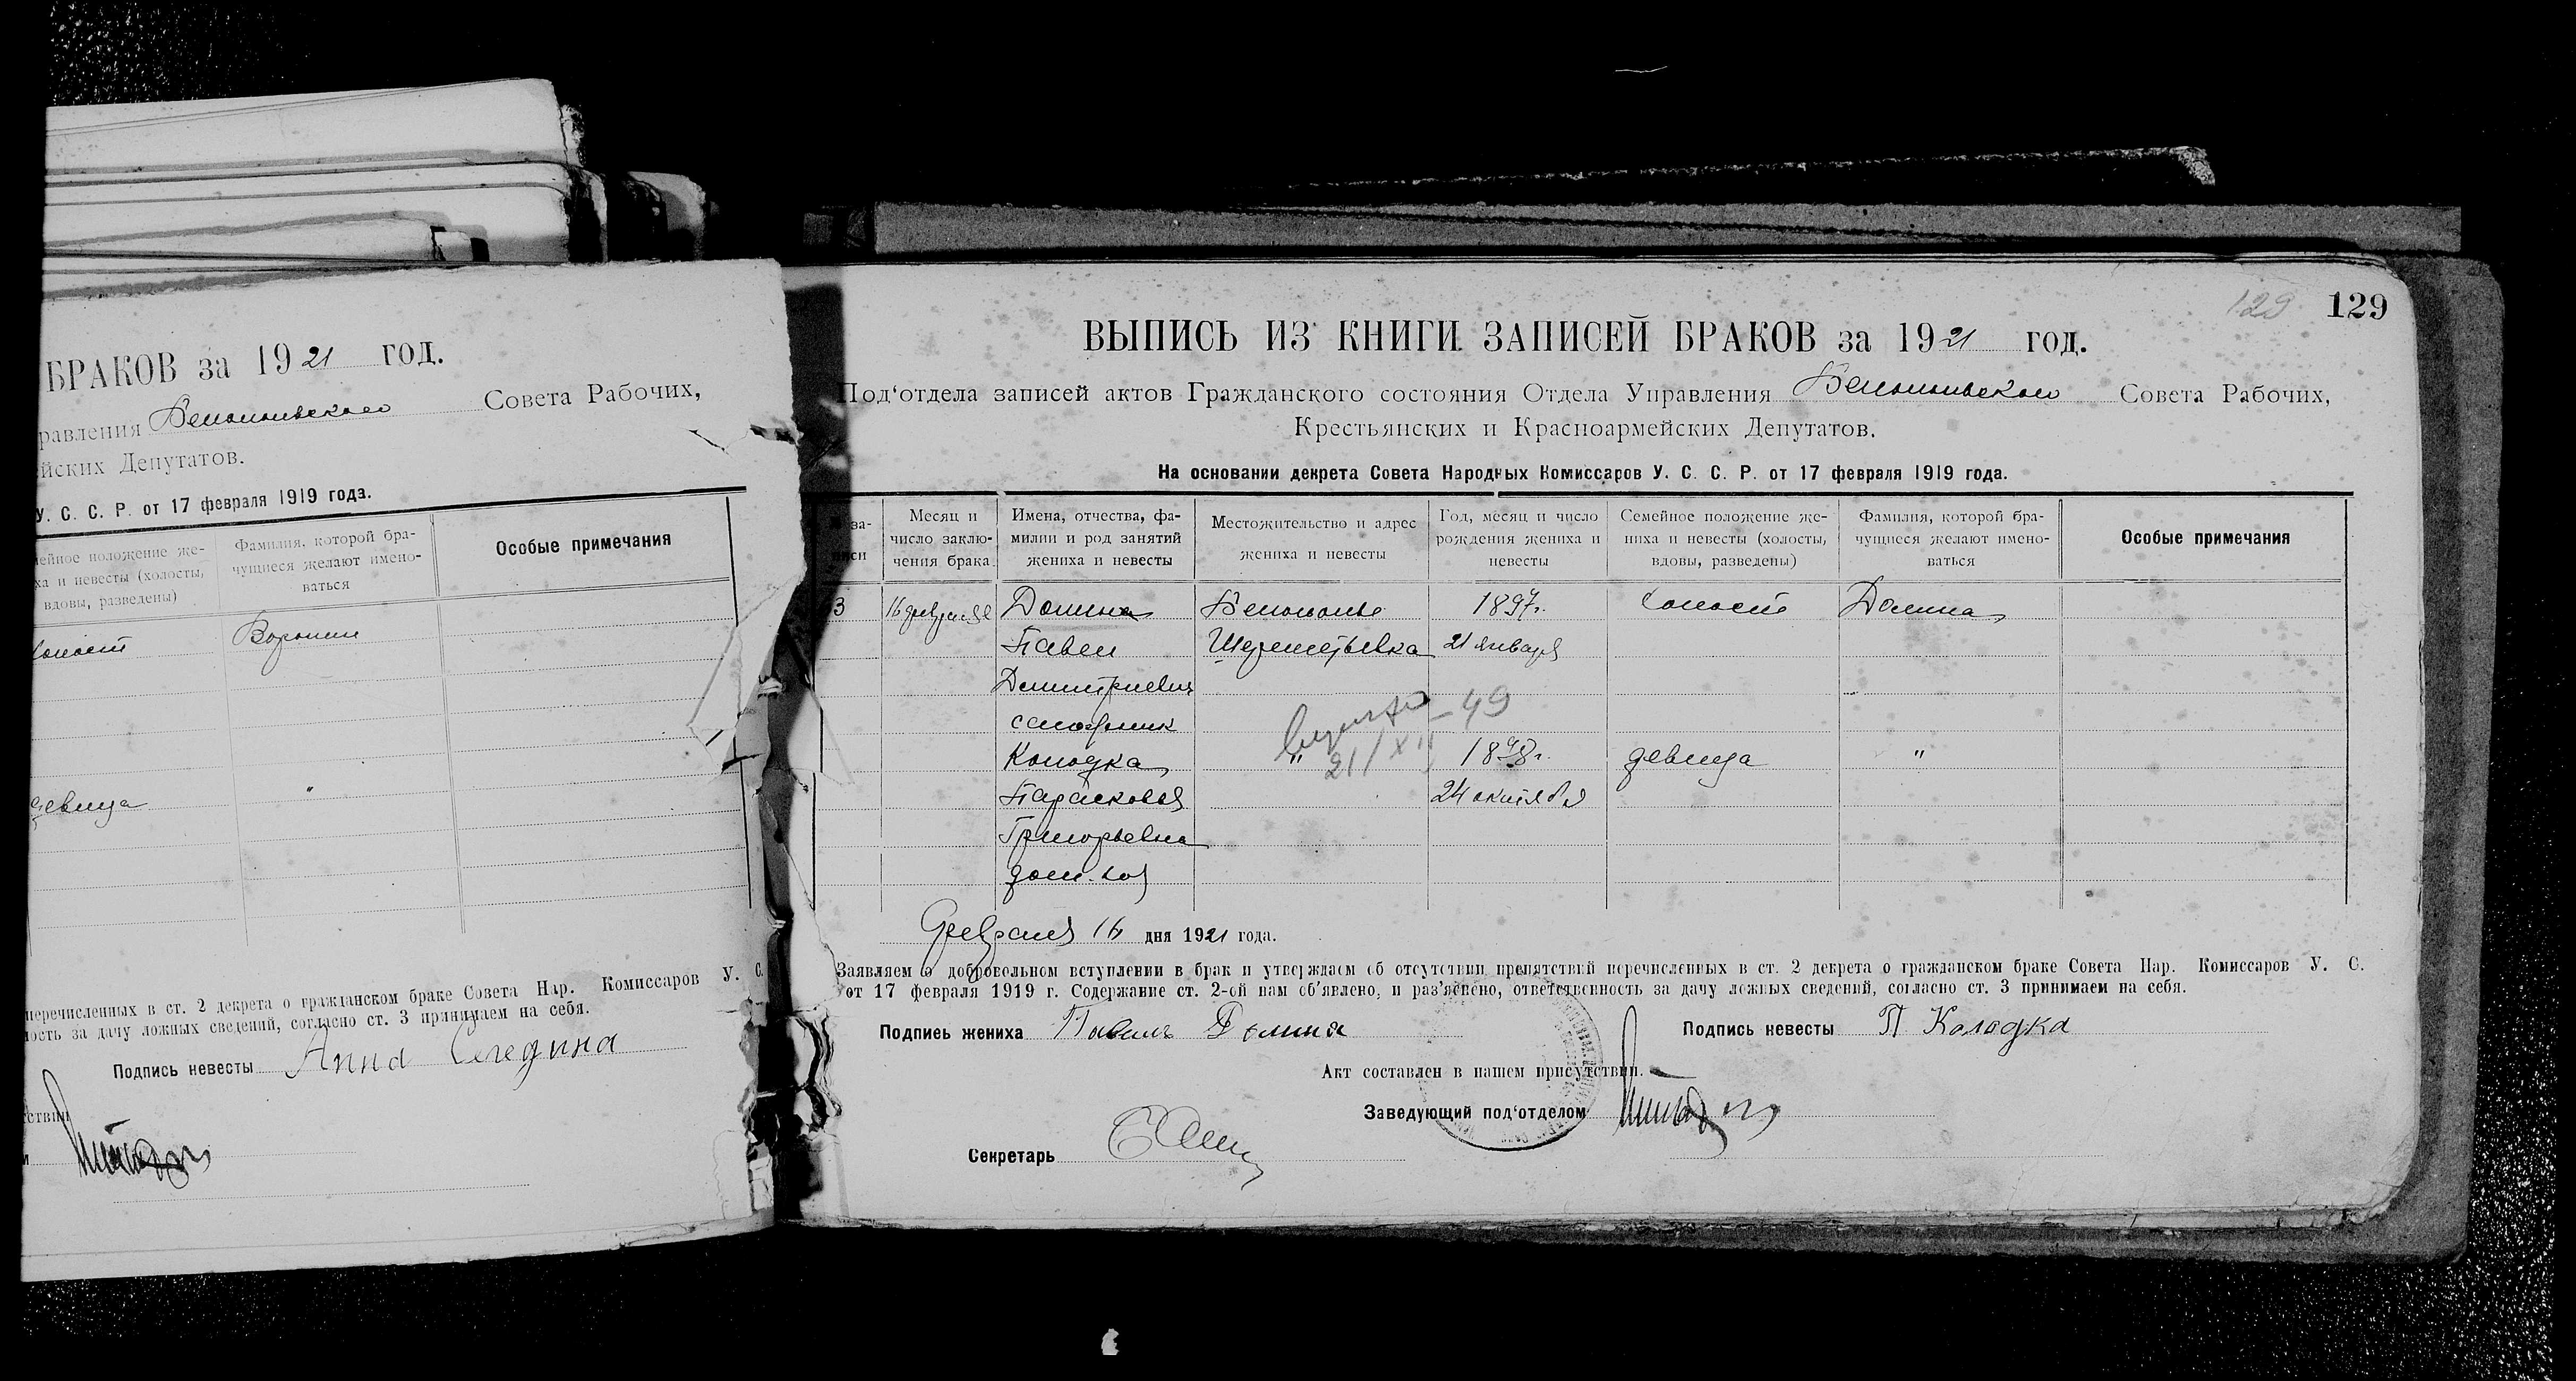 БРАКОВ за 1921 год.
равления Белопольского Совета Рабочих,
ейских Депутатов.
У. С. С. Р. от 17 февраля 1919 года.
мейное положение же-
ха и невесты (холосты,
вдовы, разведены)
Фамилия, которой бра-
чущиеся желают имено-
ваться
Особые примечания
холост
девица
"
перечисленных в ст. 2 декрета о гражданском браке Совета Нар. Комиссаров У. С.
ность за дачу ложных сведений, согласно ст. 3 принимаем на себя.
Подпись невесты Анна Середина
ствии
129 129
ВЫПИСЬ ИЗ КНИГИ ЗАПИСЕЙ БРАКОВ за 1921 год.
Под‘отдела записей актов Гражданского состояния Отдела Управления Белопольского Совета Рабочих,
Крестьянских и Красноармейских Депутатов.
На основании декрета Совета Народных Комиссаров У. С. С. Р. от 17 февраля 1919 года.
за-
писи
Месяц и
число заклю-
чения брака
Имена, отчества, фа-
милии и род занятий
жениха и невесты
Местожительство и адрес
жениха и невесты
Год, месяц и число
рождения жениха и
невесты
Семейное положение же-
ниха и невесты (холосты,
вдовы, разведены)
Фамилия, которой бра-
чущиеся желают имено-
ваться
Особые примечания
3 16 февраля Долина Белополье 1897г. холост Долина
Павел Шереметьевка 21 января
Дмитриевич
сапожник
49
Колодка " 21/XII 1898г. девица "
Парасковья 24 октября
Григорьевна
дом. хоз
Февраля 16 дня 1921 года.
Заявляем о добровольном вступлении в брак и утверждаем об отсутствии препятствий перечисленных в ст. 2 декрета о гражданском браке Совета Нар. Комиссаров У. С.
от 17 февраля 1919 г. Содержание ст. 2-ой нам об‘явлено, и раз‘яснено, ответственность за дачу ложных сведений, согласно ст. 3 принимаем на себя.
Подпись жениха Павелъ Долина Подпись невесты П Колодка
Акт составлен в нашем присутствии.
Заведующий под‘отделом
Секретарь